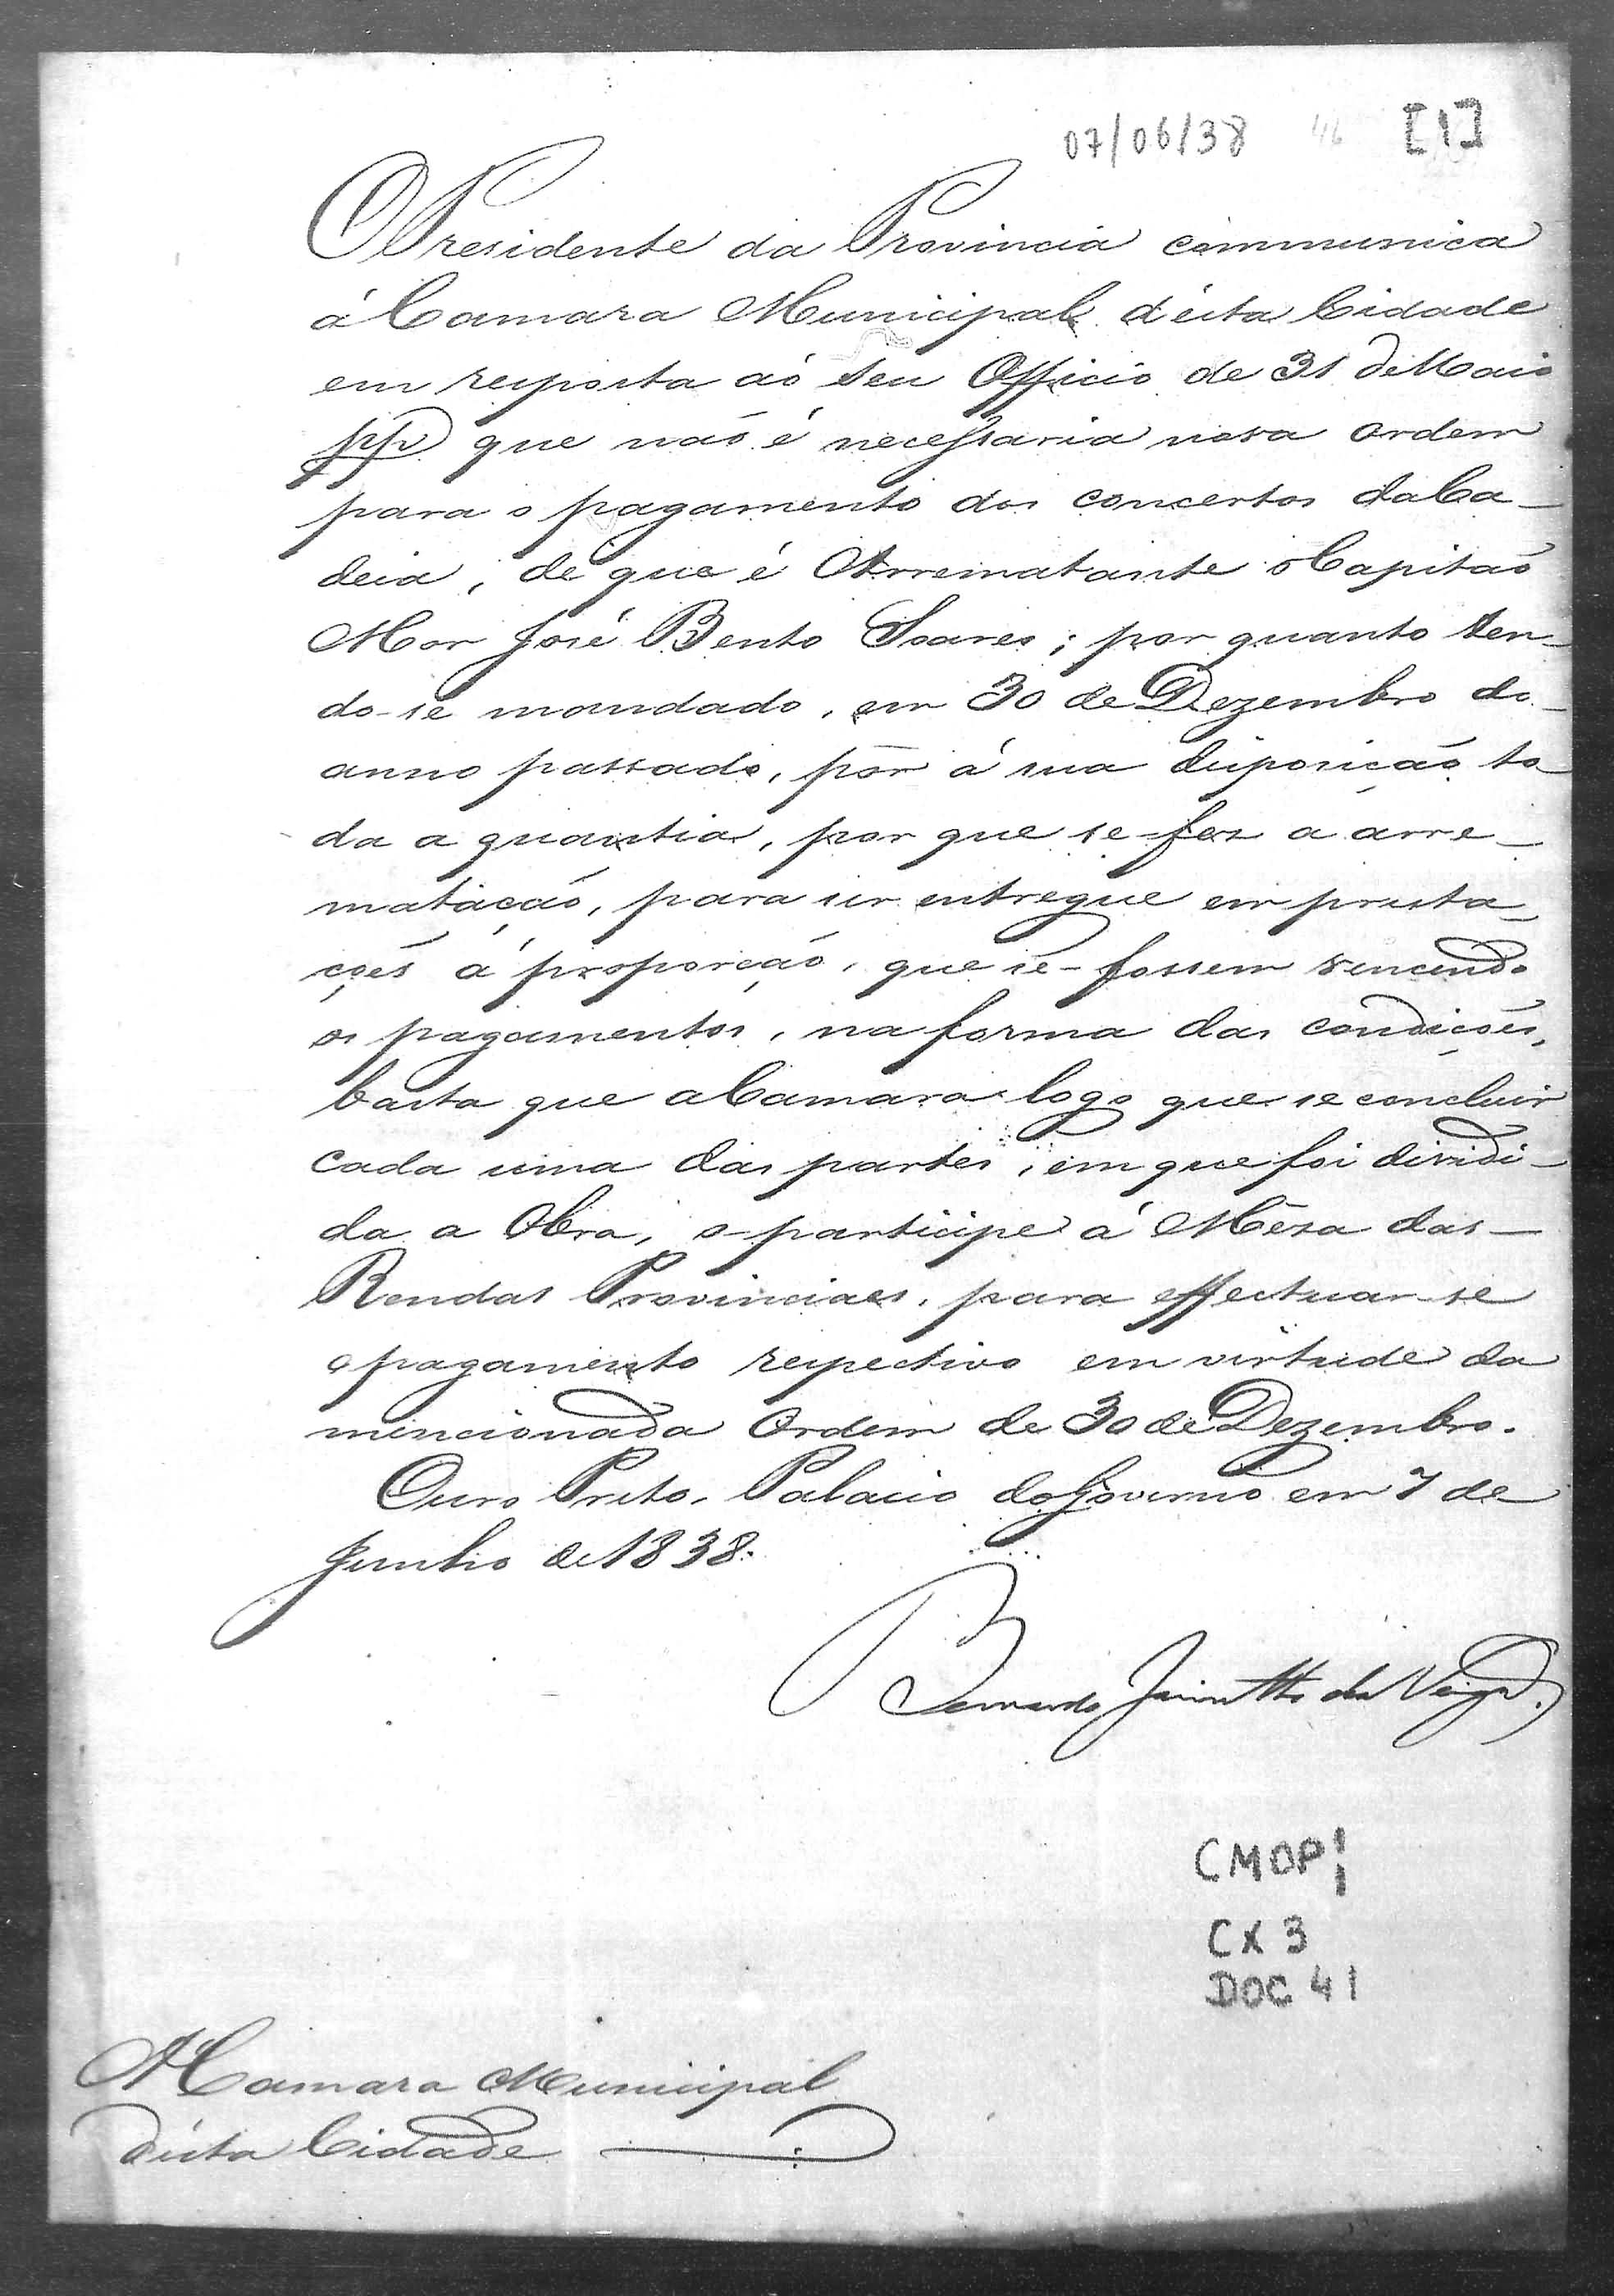 07/06/38 46 [1]
O Presidente da Provincia communica
á Camara Municipal d'ésta Cidade
em resposta aó seu Officio de 31 de Maio
pp que não é necessaria nova ordem
para o pagamento dos concertos da Ca-
deia, de que é Arrematante o Capitão
Mor José Bento Soares; por quanto ten-
do-se mandado, em 30 de Dezembro do
anno passado, pôr á sua disposição to
da a quantia, por que se-fez a arre-
matação, para ser entregue em presta-
ções á proporção, que se-fossem vencendo
os pagamentos, na forma das condições,
basta que a Camara logo que se concluir
cada uma das partes, em que foi dividi-
da a Obra, o-participe á Mêsa das-
Rendas Provinciaes, para effectuar-se
o pagamento respectivo em virtude da
mencionada Ordem de 30 de Dezembro.
Ouro Preto, Palacio do Governo em 7 de
Junho de 1838.
Bernardo Jacintho da Veiga.
CMOP¦
CX 3
DOC 41
Á Camara Municipal
d'ésta Cidade